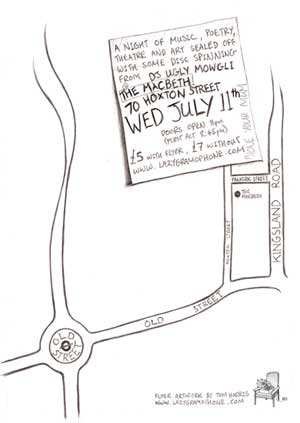 A NIGHT OF MUSIC, POETRY,
THEATRE AND ART SEALED OFF
WITH SOME DISC SPINNING
FROM DJ UGLY MOWGLI
THE MACBETH
70 HOXTON STREET
WED JULY 11th
DOORS OPEN 8pm
(FIRST ACT 8:45pm)
£5 WITH FLYER, £7 WITHOUT
WWW.LAZYGRAMOPHONE.COM
YOUR MUM
FALKIRK STREET
THE
MACBETH
KINGSLAND ROAD
HOXTON STREET
OLD STREET
OLD
STREET
FLYER ARTWORK BY TOM HARRIS
WWW.LAZYGRAMOPHONE.COM